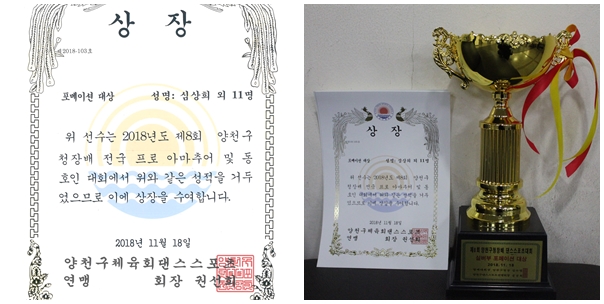 상 장
제2018-103호
포메이션 대상 성명: 심상희 외 11명
위 선수는 2018년도 제8회 양천구
청장배 전국 프로 아마추어 및 동
호인 대회에서 위와 같은 성적을 거두
었으므로 이에 상장을 수여합니다.
2018년 11월 18일
양천구체육회댄스스포츠
연맹 회장 권선희
상 장
포메이션 대상 성명: 심상희 외 11명
위 선수는 2018년도 제8회 양천구
청장배 전국 프로 아마추어 및 동
호인 대회에서 위와 같은 성적을 거두
었으므로 이에 상장을 수여합니다.
2018년 11월 18일
양천구체육회댄스스포츠
연맹 회장 권선희
제8회 양천구청장배 댄스스포츠대회
포메이션 대상